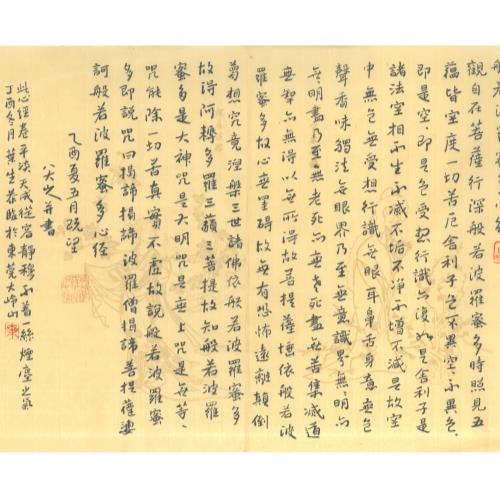 般若
觀自在菩薩行深般若波羅多時照見五
蘊皆空度一切苦厄舍利子色不異空不異色
即是空即是色受想行識亦復如是舍利子是
諸法空相不生不滅不垢不淨不增不減是故空
中無色受想行識無眼耳鼻舌身意無色
聲香味觸法無眼界乃至無意識界無明亦
無明盡乃至無老死亦無老死盡無苦集滅道
無智亦無得以無所得故菩提薩埵依般若波
羅蜜多故心無罣礙故無有恐怖遠離顛倒
夢想究竟涅槃三世諸佛依般若波羅蜜多
故得阿耨多羅三藐三菩提故知般若波羅
蜜多是大神咒是大明咒是無上咒是無等、
咒能除一切苦真實不虛故說般若波羅蜜
多即說咒曰揭諦揭諦波羅僧揭諦菩提薩婆
訶般若波羅蜜多心經
乙酉夏五月既望
八大書
此心經卷平淡天成從容靜穆不著絲煙塵之氣
丁酉冬月葉生春臨於東莞大嶺山